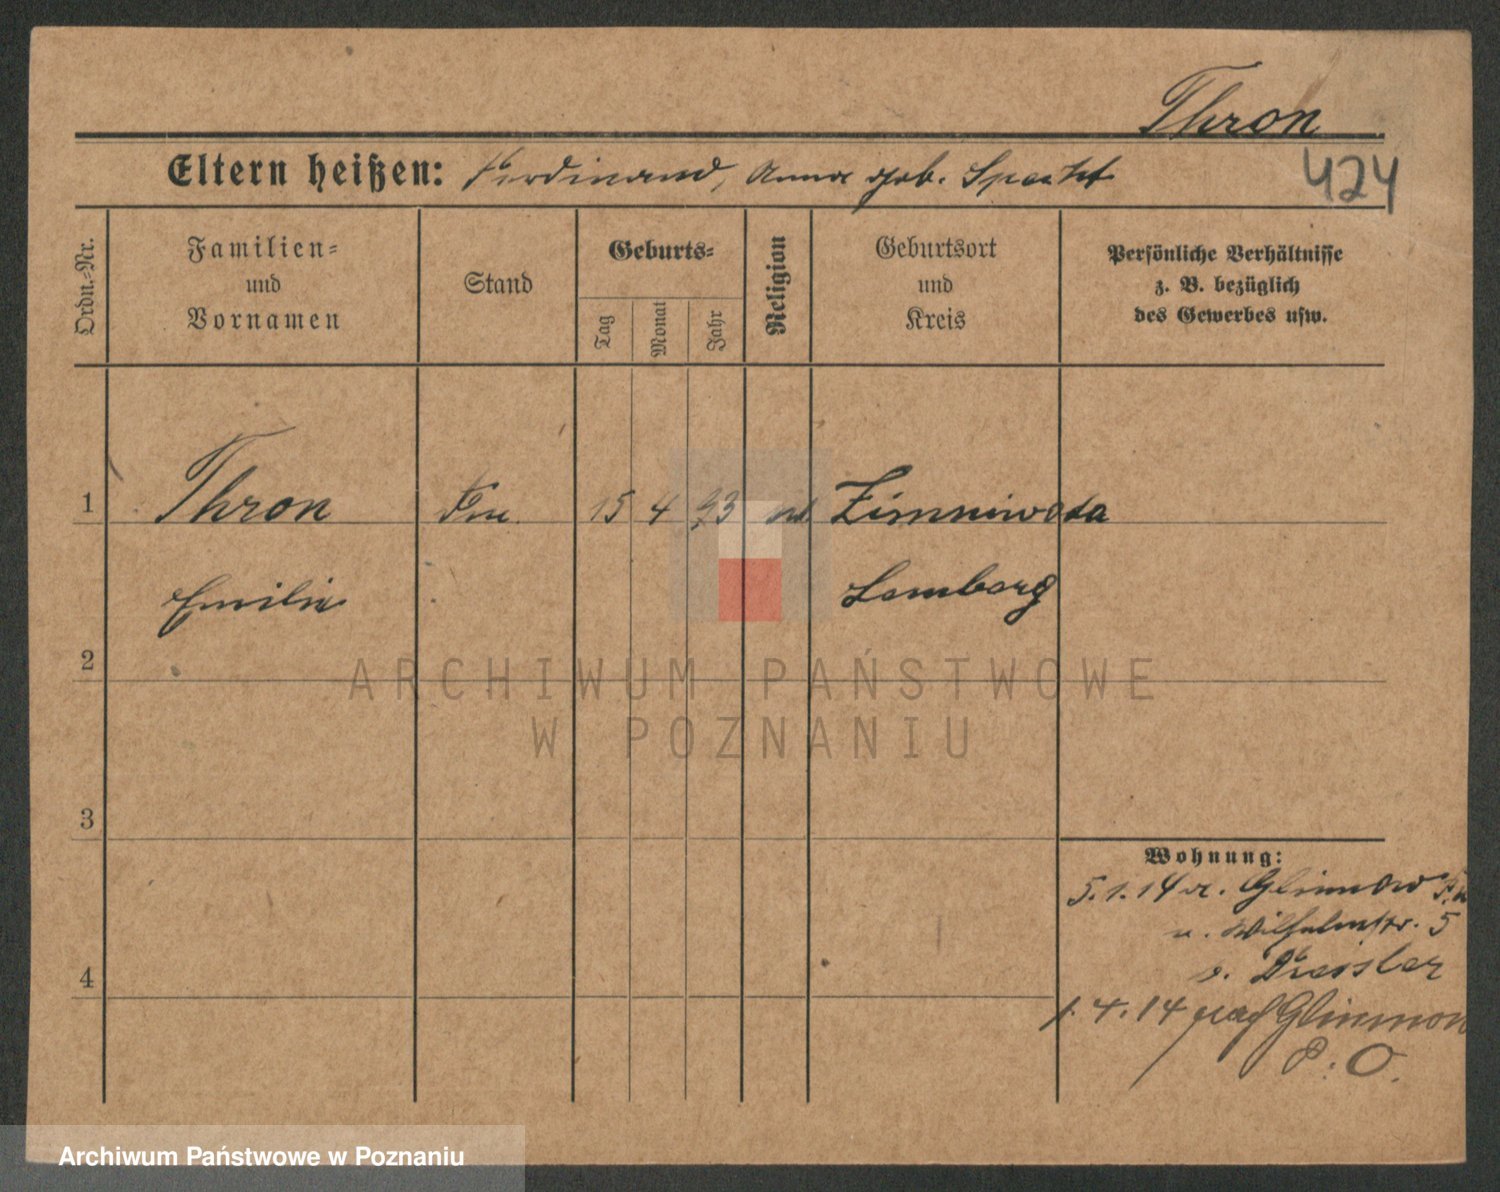 Thron
Eltern heißen: Ferdinand, Anna geb. Specht
424
Ordn.=Nr.
Familien=
und
Vornamen
Stand
Geburts=
Tag
Monat
Jahr
Religion
Geburtsort
und
Kreis
Persönliche Verhältnisse
z. B. bezüglich
des Gewerbes usw.
1 Thron 15 4 93 Zimniwoda
Emilie Lemberg
2
ARCHIWUM PAŃSTWOWE
W POZNANIU
3
Wohnung:
5.1.14 a. Glinnow
n. Wilhelmstr. 5
b. Dressler
4
1.4.14 nach Glinnow
P. O.
Archiwum Państwowe w Poznaniu